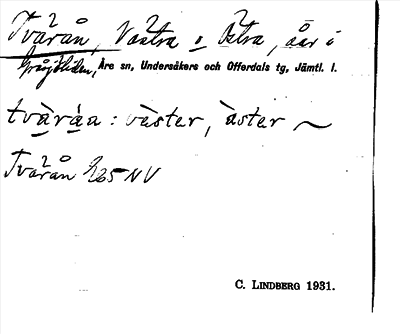 Tvärån, Västra o Östra, åar i
Åre sn, Undersåkers och Offerdals tg, Jämtl. l.
tvä̀rá̀a : vä̀ster, ä̀ster ~
Tvärån 265 NV
C. LINDBERG 1931.